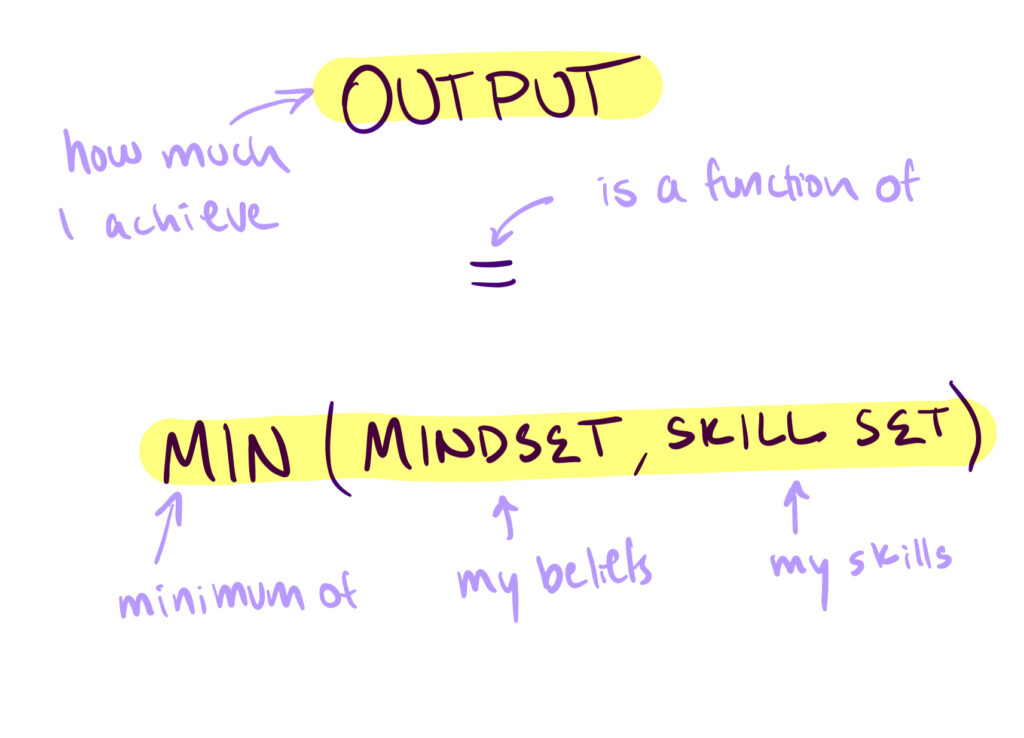 OUTPUT
how much
I achieve
is a function of
=
MIN (MINDSET, SKILL SET)
minimum of
my beliefs
my skills